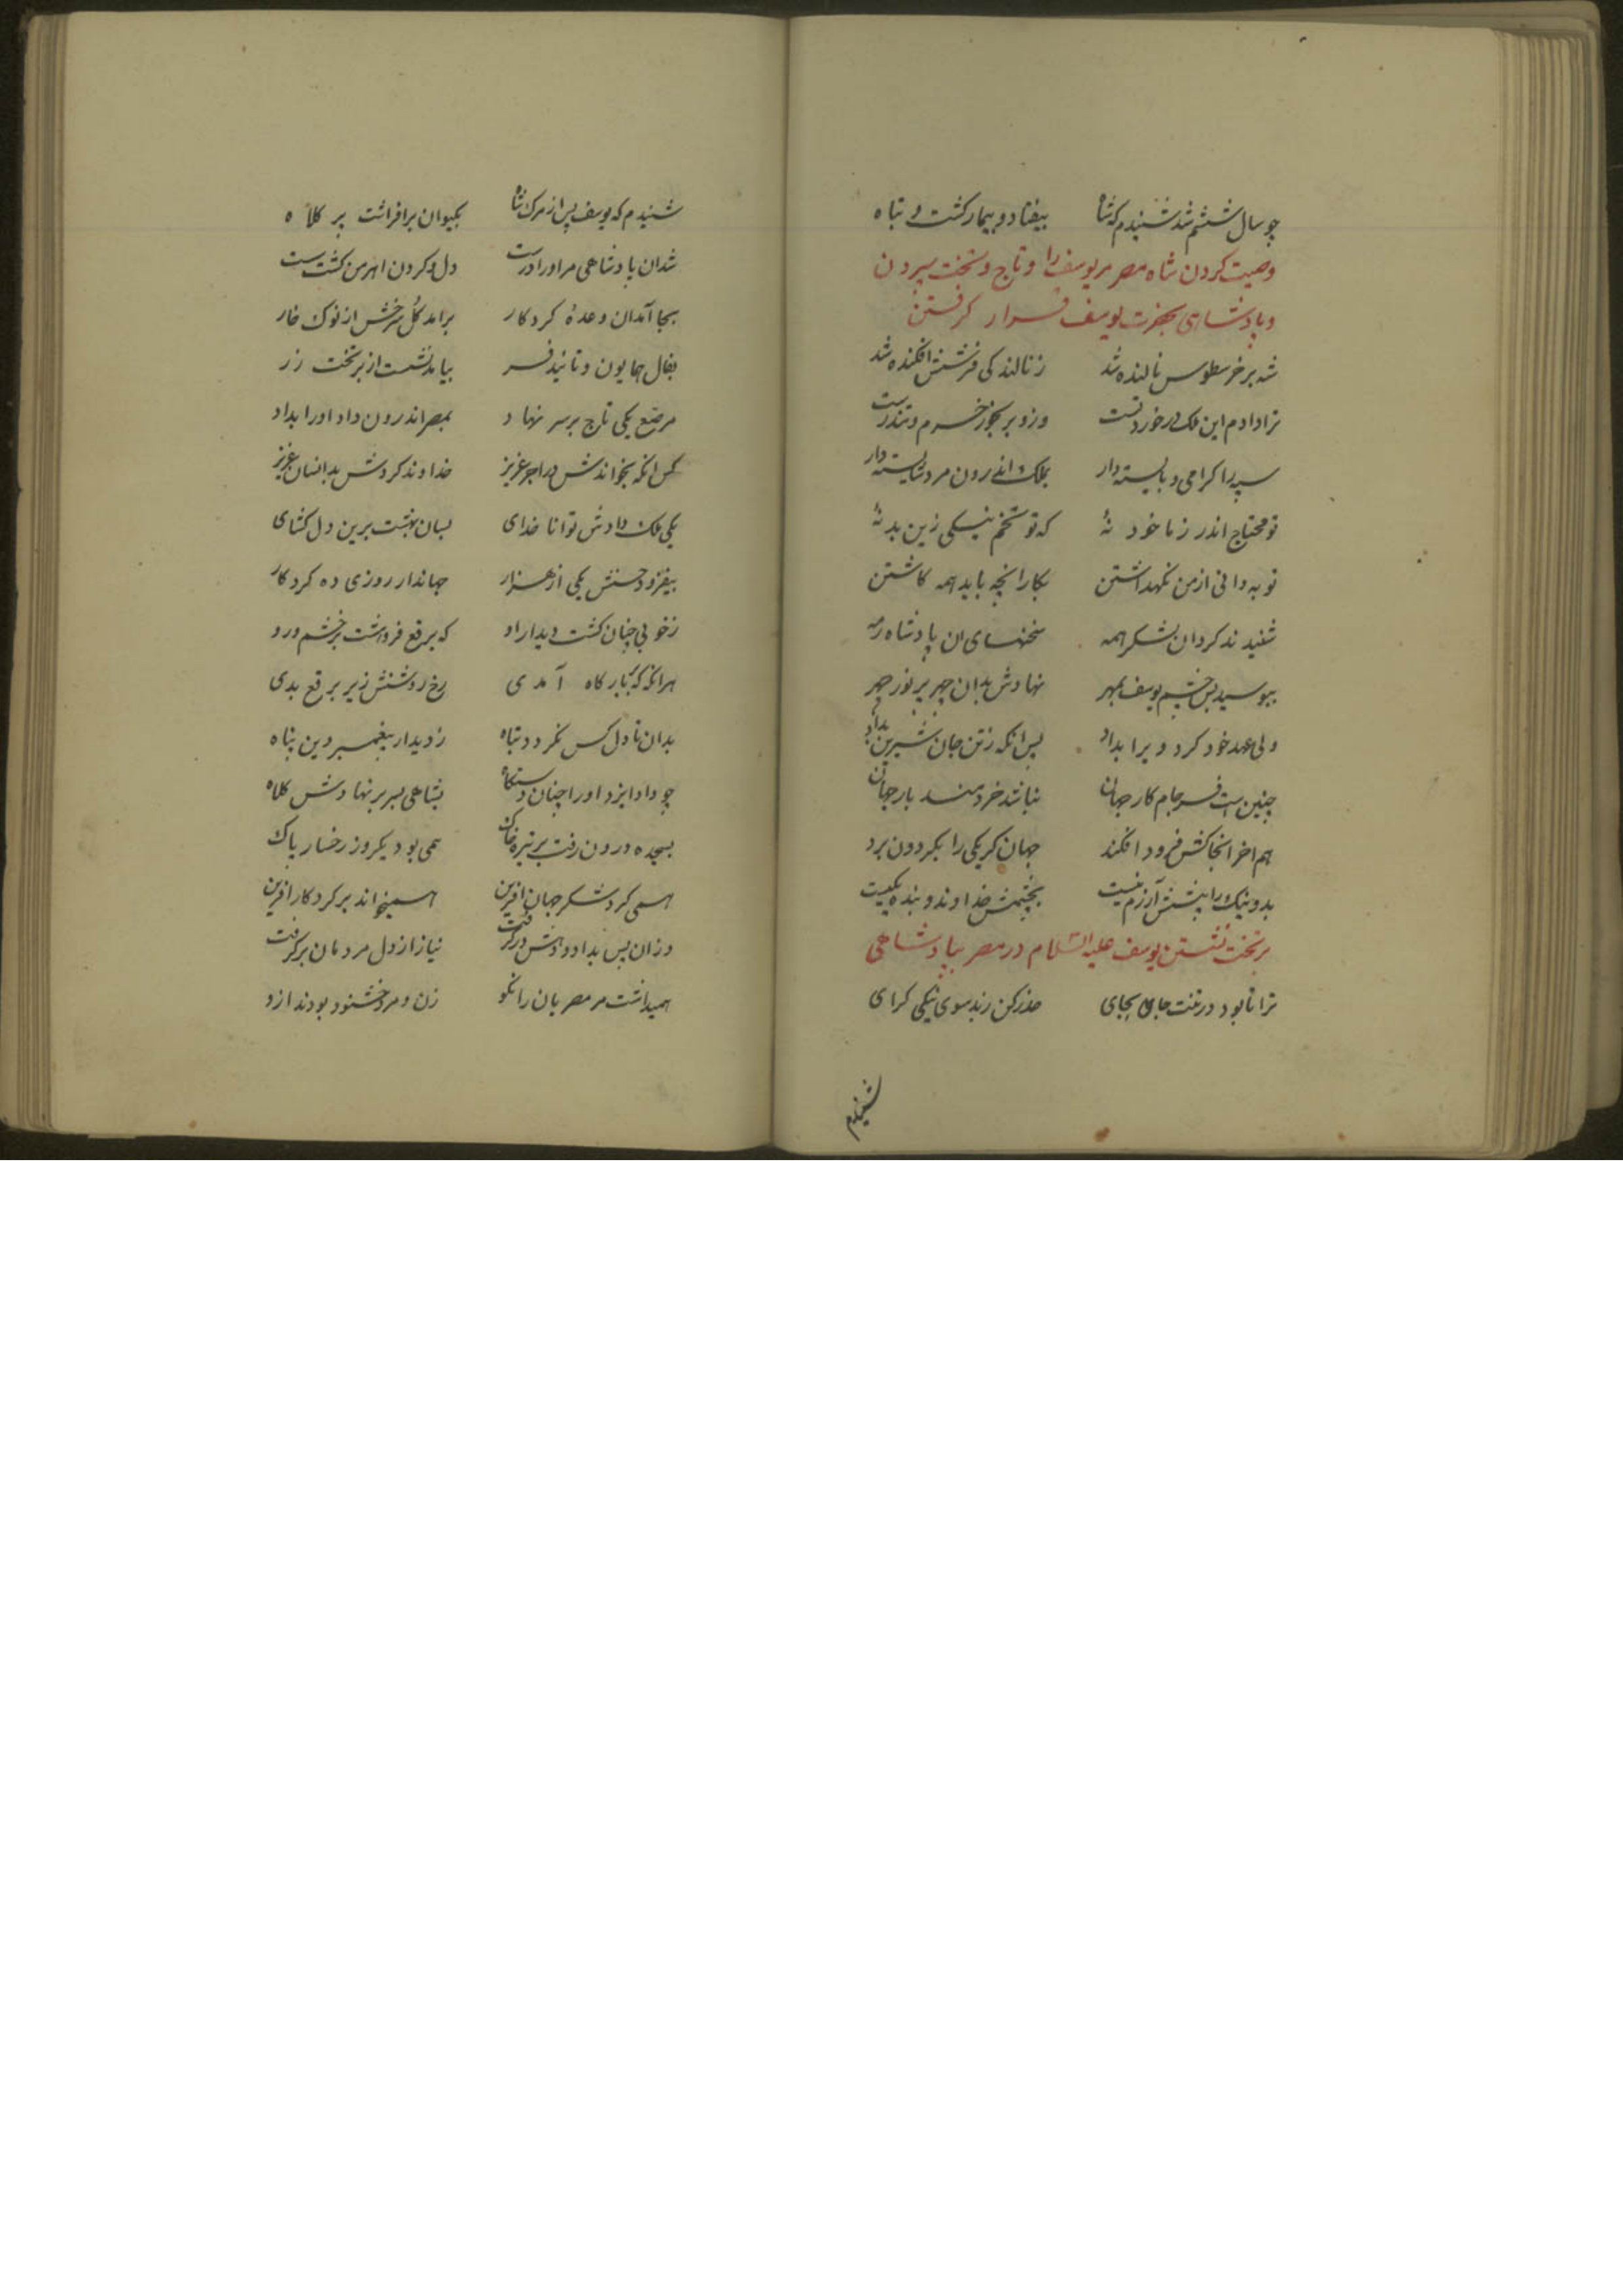 چو سال ششم شد شنیدم که شاه بیفتاد و بیمار گشت و تباه
وصیت کردن شاه مصر مر یوسف را و تاج و تخت سپردن
و پادشاهی بحضرت یوسف قرار گرفتن
شه برخر سطلوس نالنده شد ز نالندکی فرشش افکنده شد
ترا دادم این ملک در خورد تست وزو بر بخور خرم و تندرست
سپه را کرامی و بایسته دار بملک اندرون مرد شایسته دار
تو محتاج اندرز ما خود نهٔ که تو تخم نیکی زین بد نهٔ
تو به دانی از من نکهداشتن بکار انچه باید همه کاشتن
شنیدند کردان لشکر همه سخنهای ان پادشاه رمه
ببوسید پس چشم یوسف بمهر نهادش بدان چهر پر نور چهر
ولی عهد خود کرد ویرا بداد پس انکه ز تن جان شیرین بداد
چنین است فرجام کار جهان نباشد خردمند بار جهان
هم اخر انجاکش فرود افکند جهان کر یکی را بکردون برد
بد و نیک را پیشش آزرم نیست بچشمش خداوند و بنده یکیست
بر تخت نشستن یوسف علیه السلام در مصر بپادشاهی
ترا تا بود در تنت جان بجای حذر کن ز بد سوی نیکی کرای
شنیدم
شنیدم که یوسف پس از مرک شاه بکیوان برافراشت پر کلاه
شد ان پادشاهی مر او را درست دل و کردن اهرمن کشت سست
بجا آمد ان وعدهٔ کردکار برامد کل سرخش از نوک خار
بفال همایون و تائید فر بیامد نشست از بر تخت زر
مرصع یکی تاج بر سر نهاد بمصر اندرون داد او را بداد
کس انکه بخواندش در اجر عزیز خداوند کردش بدانسان عزیز
یکی ملک دادش توانا خدای بسان بهشت برین دل کشای
بیفزود حسنش یکی از هزار جهاندار روزی ده کردکار
ز خوبی چنان کشت دیدار او که برقع فروهشت بر چشم و رو
هرانکه که ببارکاه آمدی رخ روشنش زیر برقع بدی
بدان تا دل کس نکردد تباه ز دیدار پیغمبر دین پناه
چو داد ایزد او را چنان دستکاه بشاهی بسر بر نهادش کلاه
بسجده درون رفت بر تیره خاک همی بود یکروز رخسار پاک
همی کرد شکر جهان افرین همیخواند بر کردکار افرین
وزان پس بداد و دهش در کرفت نیاز از دل مردمان بر کرفت
همیداشت مر مصریان را نکو زن و مرد خشنود بودند ازو